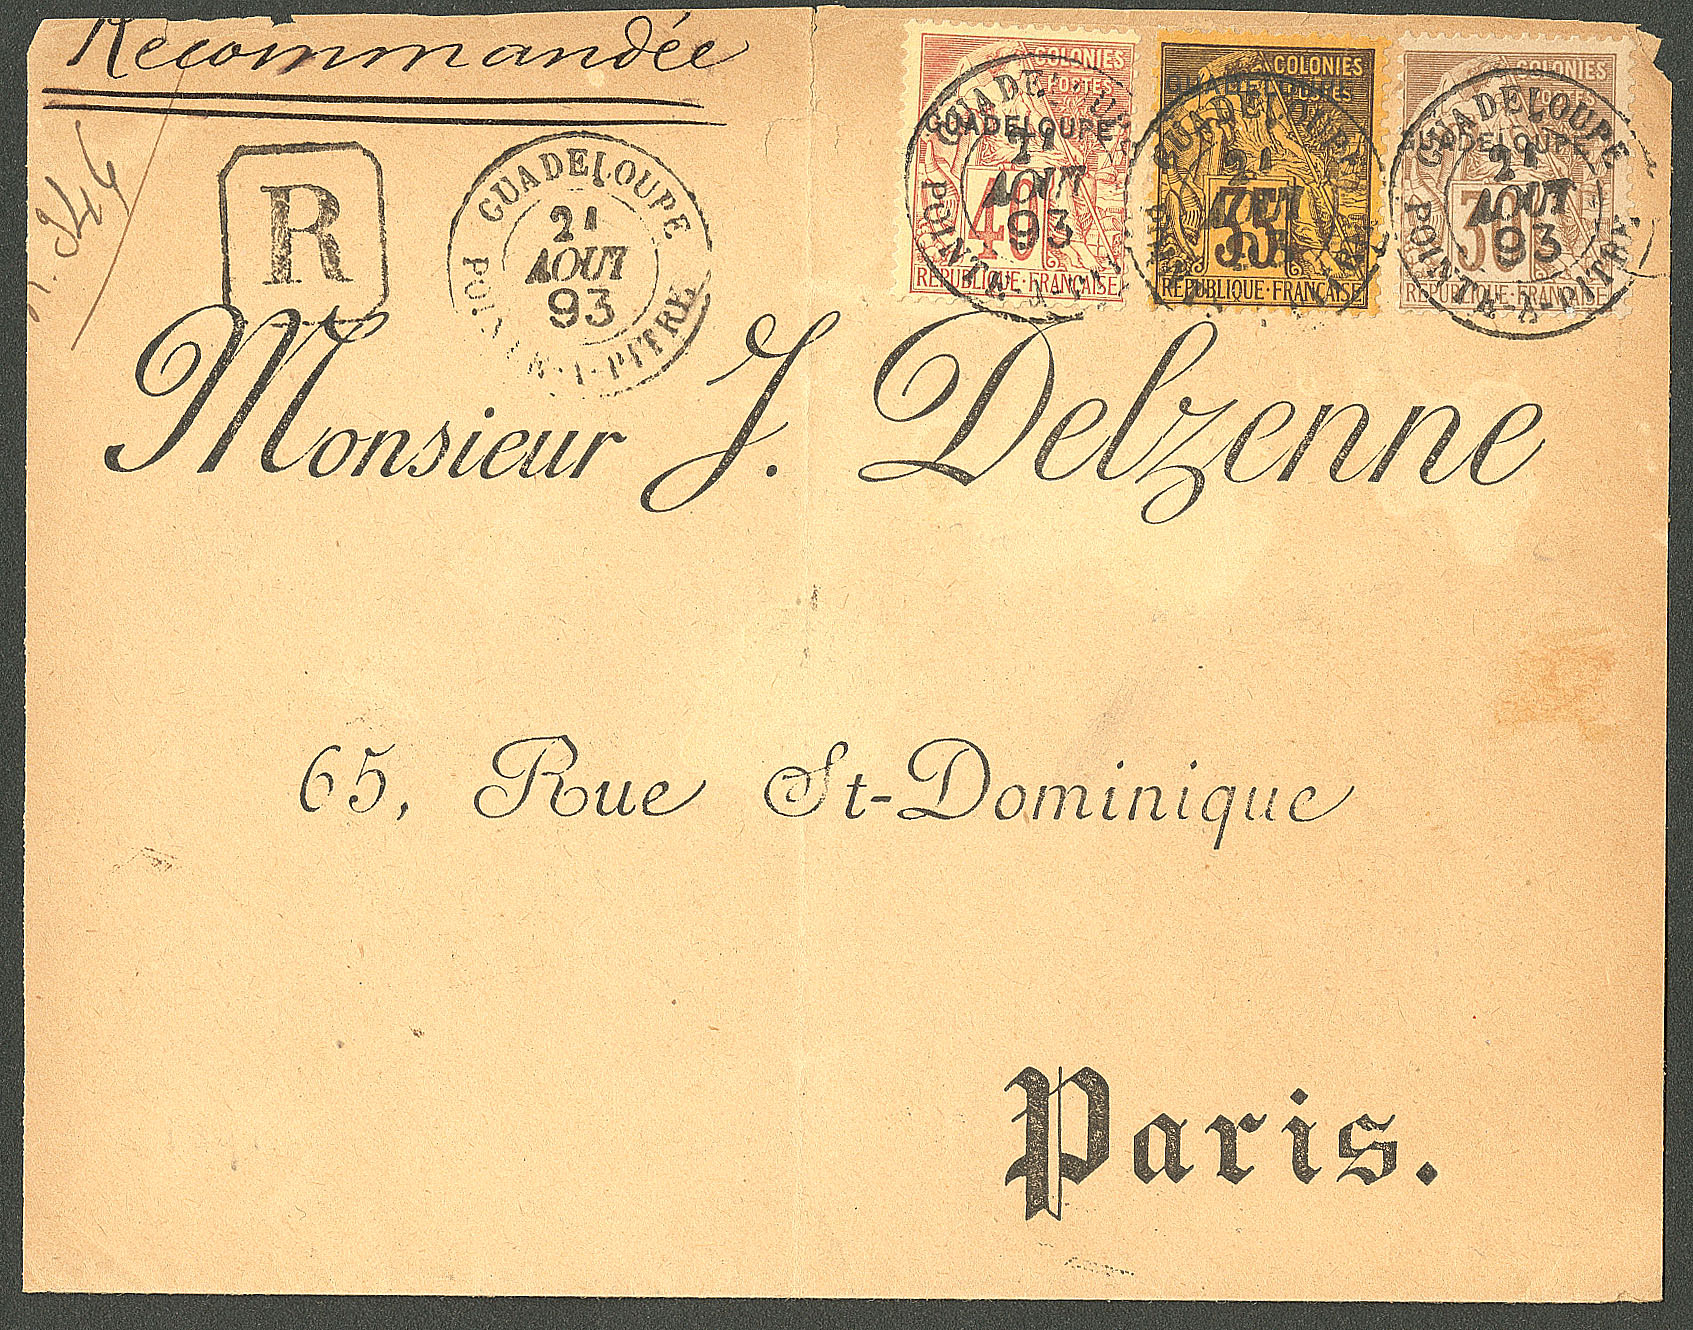 Recommandée
244
R
GUADELOUPE
21
AOUT
93
POINTE-A-PITRE
COLONIES
POSTES
GUADELOUPE
40
RÉPUBLIQUE·FRANÇAISE
GUADELOUPE
21
AOUT
93
POINTE-A-PITRE
COLONIES
POSTES
GUADELOUPE
35
RÉPUBLIQUE·FRANÇAISE
GUADELOUPE
21
AOUT
93
COLONIES
POSTES
GUADELOUPE
30
RÉPUBLIQUE·FRANÇAISE
GUADELOUPE
21
AOUT
93
POINTE-A-PITRE
Monsieur J. Delzenne
65, Rue St-Dominique
Paris.